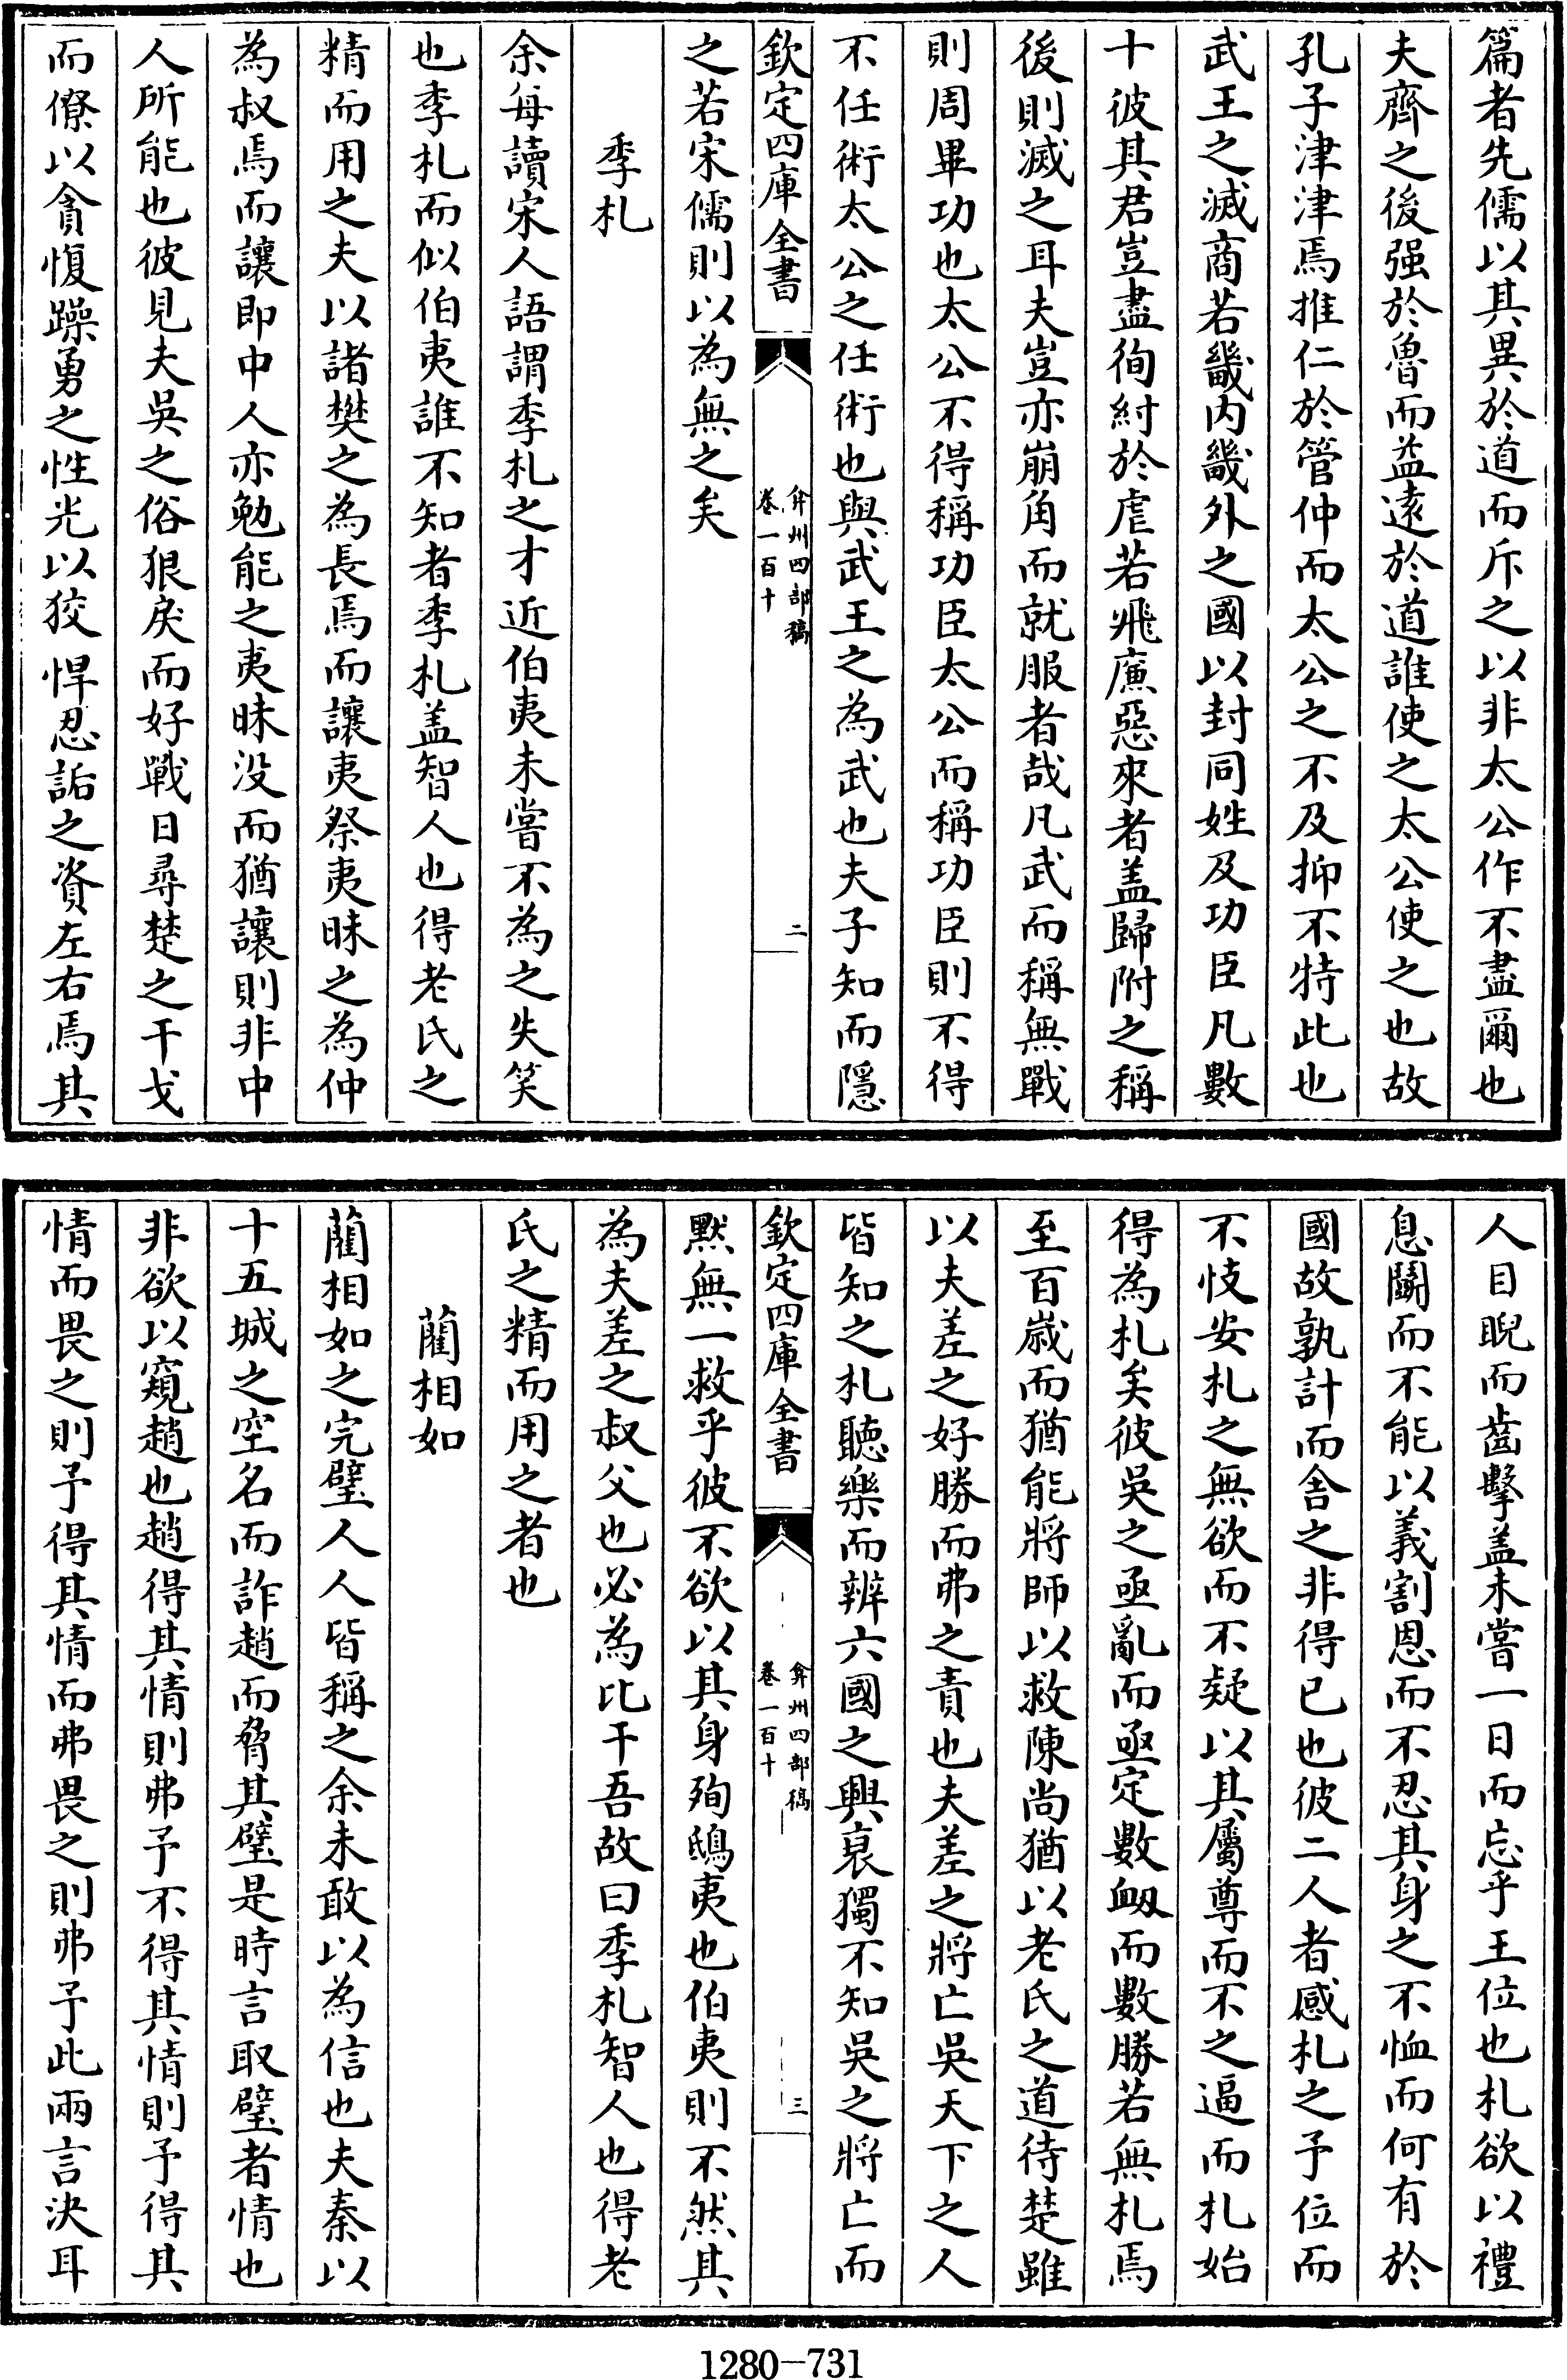 篇者先儒以其異於道而斥之以非太公作不盡爾也
夫齊之後强於魯而益遠於道誰使之太公使之也故
孔子津津焉推仁於管仲而太公之不及抑不特此也
武王之滅商若畿内畿外之國以封同姓及功臣凡數
十彼其君豈盡徇紂於虐若飛廉惡來者盖歸附之稱
後則滅之耳夫豈亦崩角而就服者哉凡武而稱無戰
則周畢功也太公不得稱功臣太公而稱功臣則不得
不任術太公之任術也與武王之為武也夫子知而隱
欽定四庫全書
弇州四部稿
卷一百十
二
之若宋儒則以為無之矣
季札
余每讀宋人語謂季札之才近伯夷未嘗不為之失笑
也季札而似伯夷誰不知者季札盖智人也得老氏之
精而用之夫以諸樊之為長焉而讓夷祭夷昧之為仲
為叔焉而讓即中人亦勉能之夷昧没而猶讓則非中
人所能也彼見夫吳之俗狠戾而好戰日尋楚之干戈
而僚以貪愎躁勇之性光以狡悍忍詬之資左右焉其
人目睨而齒擊盖未嘗一日而忘乎王位也札欲以禮
息鬭而不能以義割恩而不忍其身之不恤而何有於
國故孰計而舍之非得已也彼二人者感札之予位而
不忮安札之無欲而不疑以其屬尊而不之逼而札始
得為札矣彼吳之亟亂而亟定數衂而數勝若無札焉
至百歲而猶能將師以救陳尚猶以老氏之道待楚雖
以夫差之好勝而弗之責也夫差之將亡吳天下之人
皆知之札聽樂而辨六國之興衰獨不知吳之將亡而
欽定四庫全書
弇州四部稿
卷一百十
三
默無一救乎彼不欲以其身殉鴟夷也伯夷則不然其
為夫差之叔父也必為比干吾故曰季札智人也得老
氏之精而用之者也
藺相如
藺相如之完璧人人皆稱之余未敢以為信也夫秦以
十五城之空名而詐趙而脅其璧是時言取璧者情也
非欲以窺趙也趙得其情則弗予不得其情則予得其
情而畏之則予得其情而弗畏之則弗予此兩言決耳
1280-731